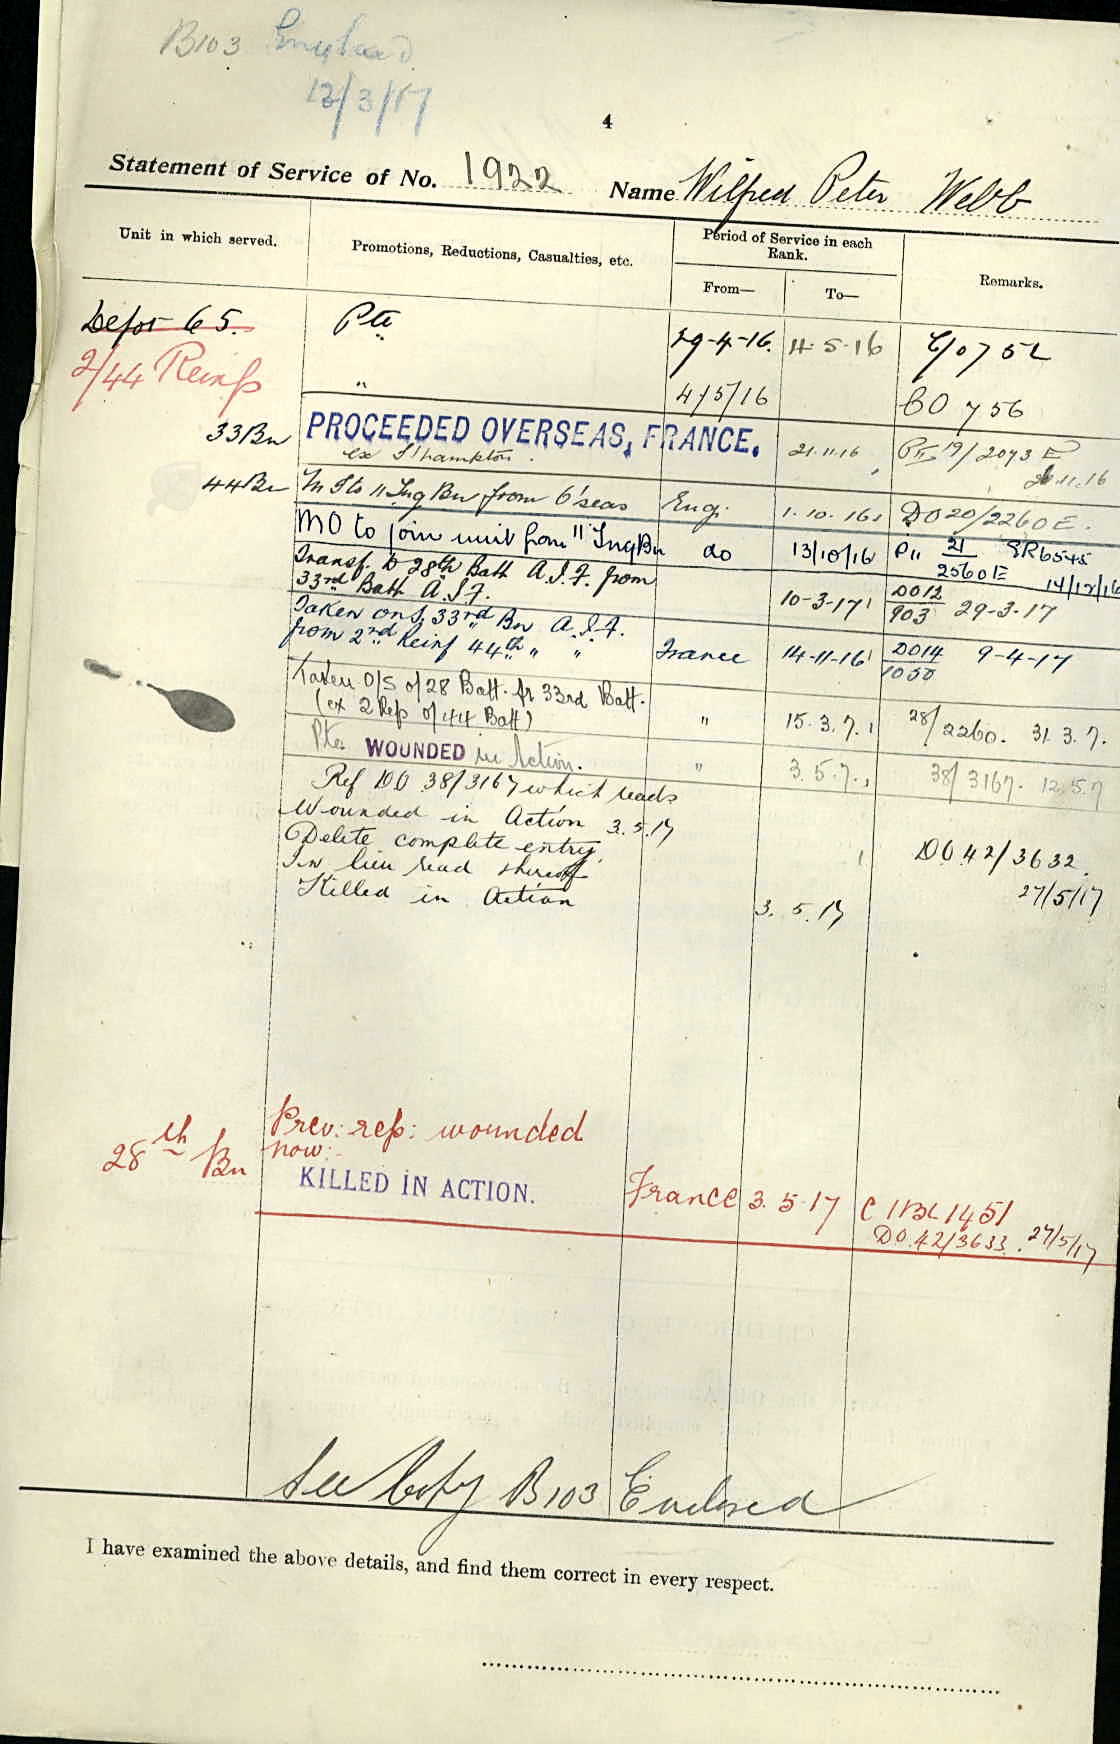 B103 England
12/3/17
4
Statement of Service of No. 1922 Name Wilfred Peter Webb
Unit in which served. Promotions, Reductions, Casualties, etc. Period of Service in each Rank. Remarks.
From— To—
Depot 65. Pte 29-4-16. 4-5-16 C/0752
2/44 Reinfs " 4/5/16 BO 756
33 Bn PROCEEDED OVERSEAS, FRANCE. 21.11.16 19/2093 E
ex S'hampton. 20.11.16
44 Bn M I to 11 Trg Bn from O'seas Eng. 1.10.16 DO 20/2260 E.
MO to join unit from 11 Trg Bn do 13/10/16 P11 21/2560E SR6545 14/12/16
Transf. to 28th Batt A.I.F. from
33rd Batt A.I.F. 10-3-17 DO12/903 29-3-17
Taken on S 33rd Bn A.I.F.
from 2nd Reinf 44th " " France 14-11-16 DO14/1050 9-4-17
Taken O/S of 28 Batt. fr 33rd Batt.
(ex 2 Reps of 44 Batt) " 15.3.7. 28/2260. 31.3.7.
Pte. WOUNDED in Action. " 3.5.7. 38/3167. 12.5.7
Ref DO 38/3167 which reads
Wounded in Action 3.5.17
Delete complete entry, DO 42/3632.
In lieu read thereof 27/5/17
Killed in Action 3.5.17
Prev: rep: wounded
28th Bn now:-
KILLED IN ACTION. France 3.5.17 C 1451
DO.42/3633. 27/5/17
See Copy B103 Enclosed
I have examined the above details, and find them correct in every respect.